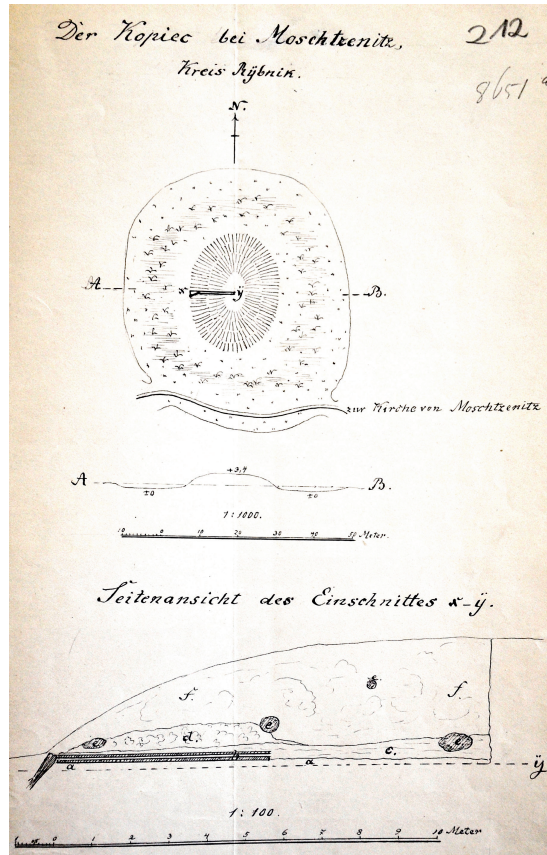 Der Kopiec bei Moschtzenitz,
212
Kreis Rÿbnik.
8651
N.
A B.
x ÿ
zur Kirche von Moschtzenitz
+3,4
A B.
±0 ±0
1:1000.
10 0 10 20 30 40 50 Meter.
Seitenansicht des Einschnittes x-ÿ.
f. g f.
e
e d. e
b c.
a a ÿ
1:100.
0 1 2 3 4 5 6 7 8 9 10 Meter